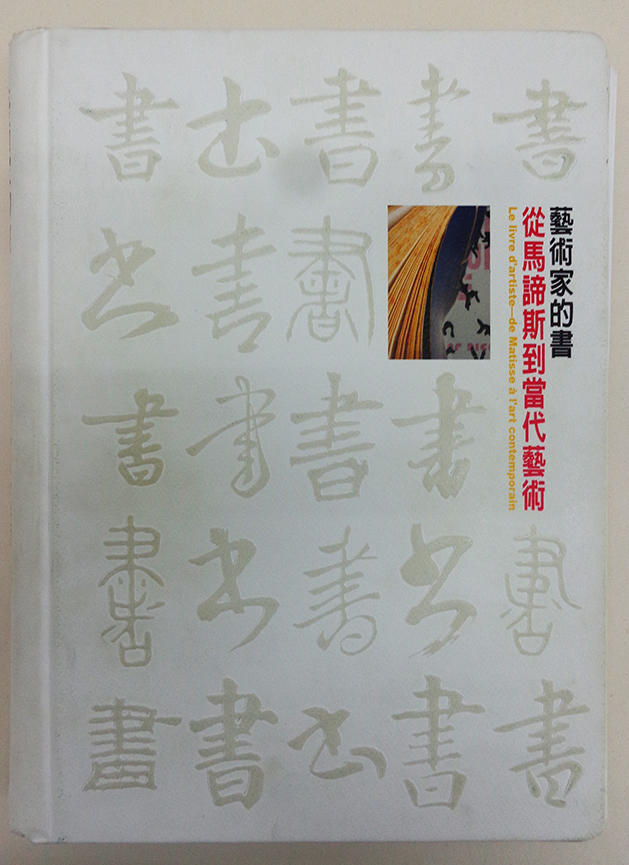 藝術家的書
從馬諦斯到當代藝術
Le livre d'artiste—de Matisse à l'art contemporain
書 书 書 書 書
书 書 書
書 書 書 書
書 书 書 书 書
書 書 书 書 書